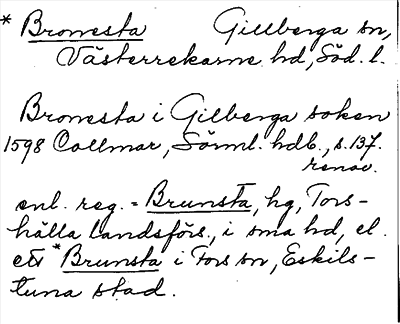 * Bronsta Gillberga sn,
Västerrekarne hd, Söd. l.
Bronsta i Gilberga soken
1598 Collmar, Sörml. hdb., s. 137.
renov.
enl. reg. = Brunsta, hg, Tors-
hälla landsförs., i sma hd, el.
ett * Brunsta i Fors sn, Eskils-
tuna stad.